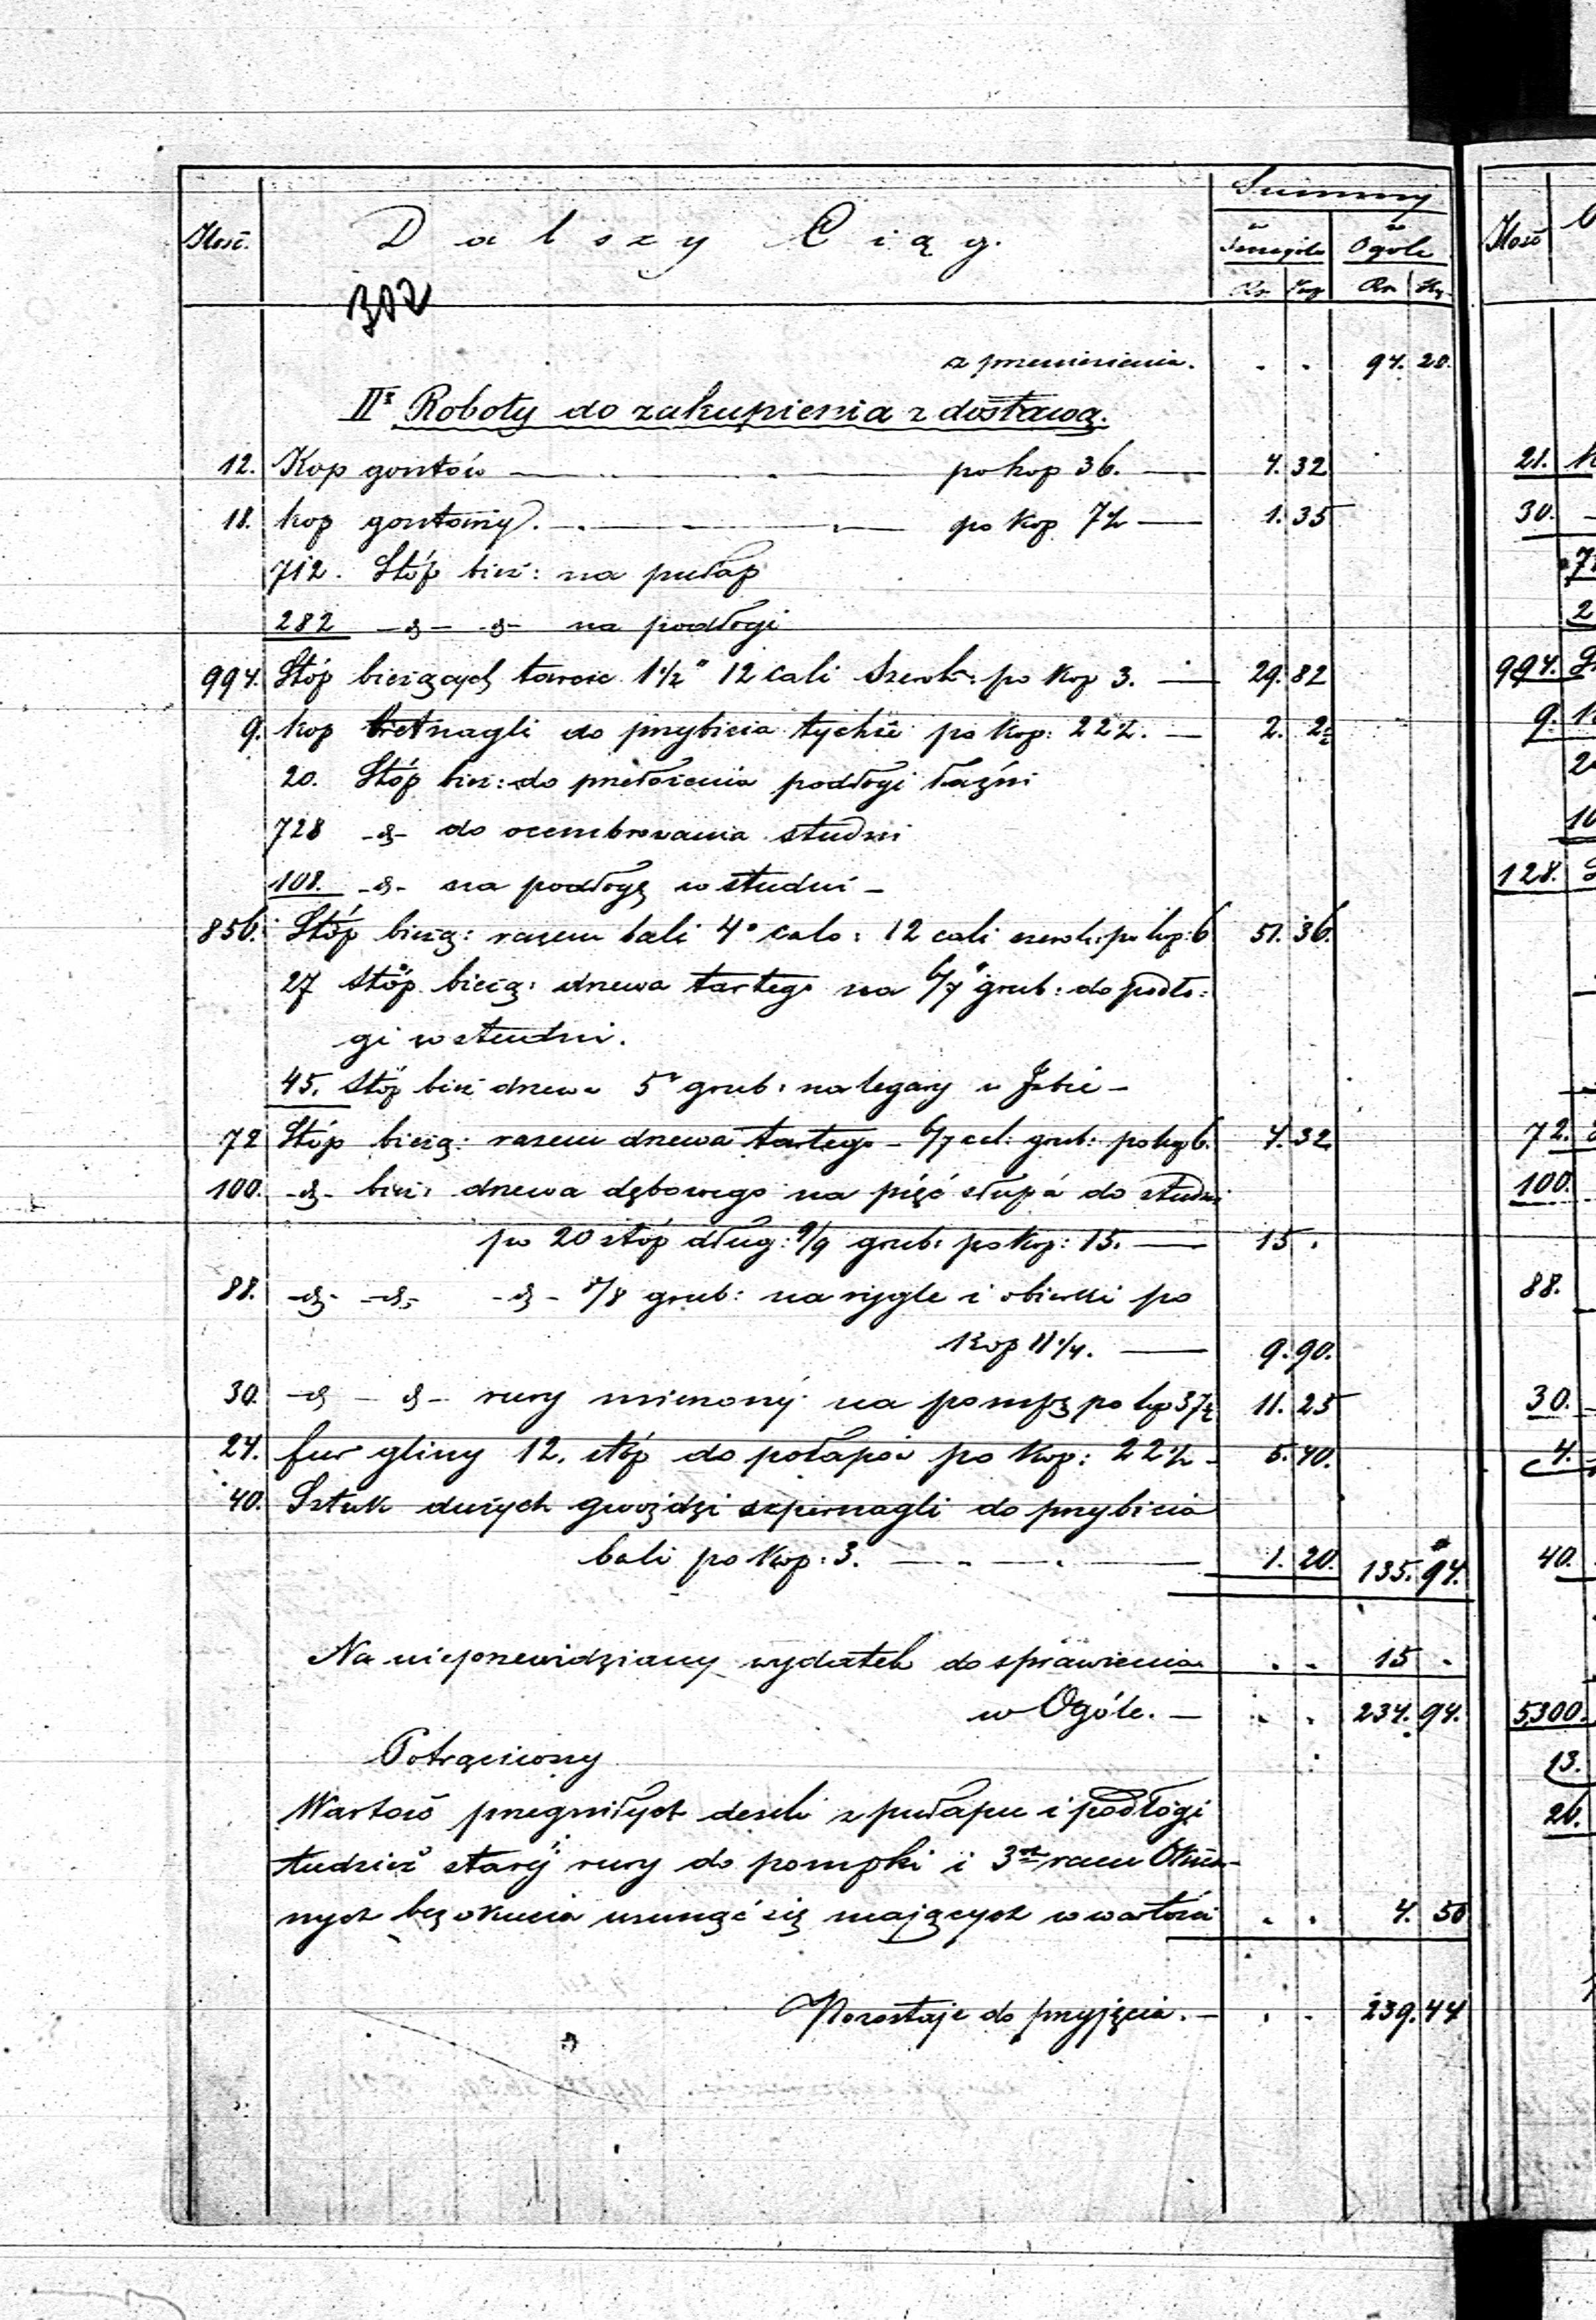 Ilość. Dalszy Ciąg. Summy
w Szczególe w Ogóle
Rs. Kop Rs. Kop
302
z przeniesienia. . . 94. 20.
II. Roboty do zakupienia z dostawą.
12. Kop gontów — po kop 36. — 4. 32
18. kop gontowy — po kop 7½ — 1. 35
712. Stóp bież: na pułap
282 -d- -d- na podłogi
994. Stóp bieżących tarcic 1½" 12 cali szerok: po kop 3. — 29. 82
9. kop bretnagli do przybicia tychże po kop: 22½. — 2. 2½
20. Stóp bież: do przełożenia podłogi łaźni
728 -d- do ocembrowania studni
108. -d- na podłogę w studni -
856. Stóp bieżą: razem bali 4" calo: 12 cali szerok: po kop: 6 51. 36.
27 stóp bieżą: drzewa tartego na 6/7" grub: do podło:
gi w studni.
45. stóp bież drzewa 5" grub: na legary w Izbie -
72 Stóp bieżą: razem drzewa tartego - 6/7 cal: grub: po kop 6. 4. 32.
100. -d- bież: drzewa dębowego na pięć słupa do studni
po 20 stóp dług: 9/9 grub: po kop: 15. — 15 .
88. -d- -d- -d- 8/8 grub: na rygle i obierki po
kop 11¼. — 9. 90.
30. -d- -d- rury na pompę po kop 37½ 11. 25
24. fur gliny 12. stóp do połapów po kop: 22½ - 5. 40.
40. Sztuk dużych gwoździ szpernagli do przybicia
bali po kop: 3. — 1. 20. 135. 94.
Na nieprzewidziany wydatek do sprawienia . . 15 .
w Ogóle. — . . 234. 94.
Potrąciwszy
Wartość przegniłych deseki z pułapu i podłogi
tudzież starej rury do pompki i 3ch ram Okien-
nych bez okucia usunąć się mających w wartości . . 4. 50
Pozostaje do przyjęcia. — . . 239. 44
Ilość
21.
30.
994.
9.
128.
72.
100.
88.
30.
4.
40.
5300.
13.
26.